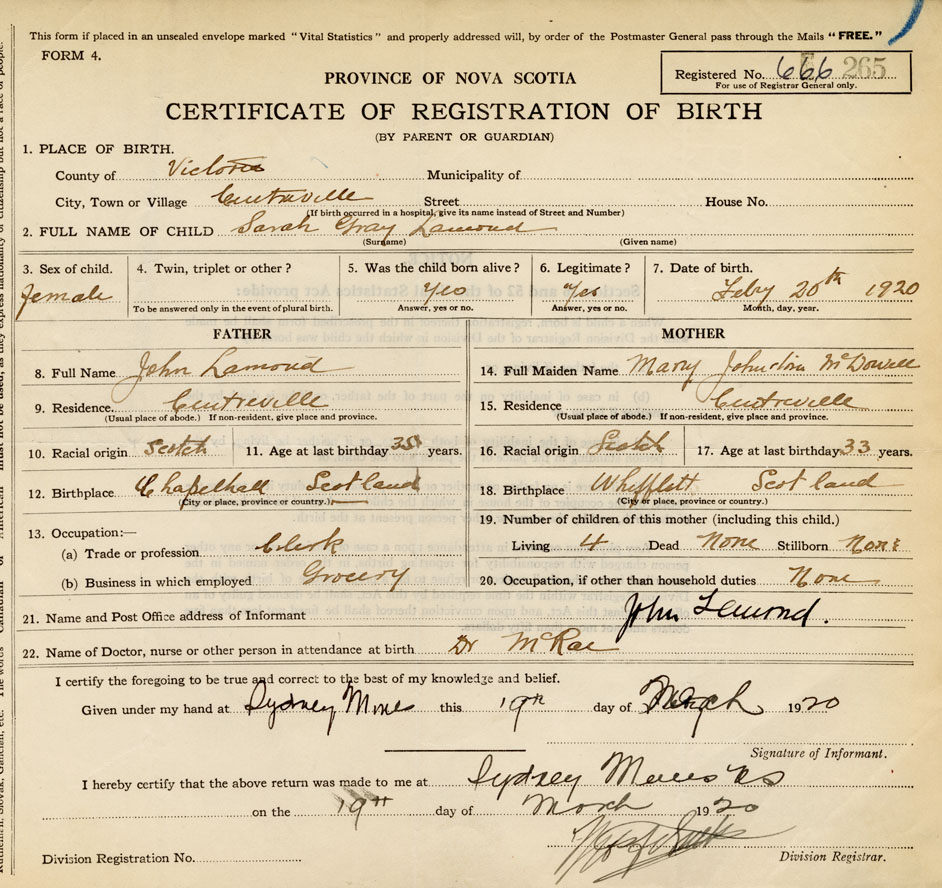 This form if placed in an unsealed envelope marked "Vital Statistics" and properly addressed will, by order of the Postmaster General pass through the Mails "FREE."
FORM 4.
Registered No. 666 265
For use of Registrar General only.
PROVINCE OF NOVA SCOTIA
CERTIFICATE OF REGISTRATION OF BIRTH
(BY PARENT OR GUARDIAN)
1. PLACE OF BIRTH.
County of Victoria Municipality of
City, Town or Village Centreville Street House No.
(If birth occurred in a hospital, give its name instead of Street and Number)
2. FULL NAME OF CHILD Sarah Gray Lamond
(Surname) (Given name)
3. Sex of child. 4. Twin, triplet or other? 5. Was the child born alive? 6. Legitimate? 7. Date of birth.
female Yes Yes Feby 20th 1920
To be answered only in the event of plural birth. Answer, yes or no. Answer, yes or no. Month, day, year.
FATHER
8. Full Name John Lamond
9. Residence Centreville
(Usual place of abode.) If non-resident, give place and province.
10. Racial origin Scotch 11. Age at last birthday 35 years.
12. Birthplace Chapelhall Scotland
(City or place, province or country.)
13. Occupation:—
(a) Trade or profession Clerk
(b) Business in which employed Grocery
MOTHER
14. Full Maiden Name Mary Johnston McDowell
15. Residence Centreville
(Usual place of abode.) If non-resident, give place and province.
16. Racial origin Scotch 17. Age at last birthday 33 years.
18. Birthplace Whifflett Scotland
(City or place, province or country.)
19. Number of children of this mother (including this child.)
Living 4 Dead None Stillborn None
20. Occupation, if other than household duties None
21. Name and Post Office address of Informant John Lamond.
22. Name of Doctor, nurse or other person in attendance at birth Dr McRae
I certify the foregoing to be true and correct to the best of my knowledge and belief.
Given under my hand at Sydney Mines this 19th day of March 1920
Signature of Informant.
I hereby certify that the above return was made to me at Sydney Mines NS
on the 19th day of March 1920
Division Registration No. Division Registrar.